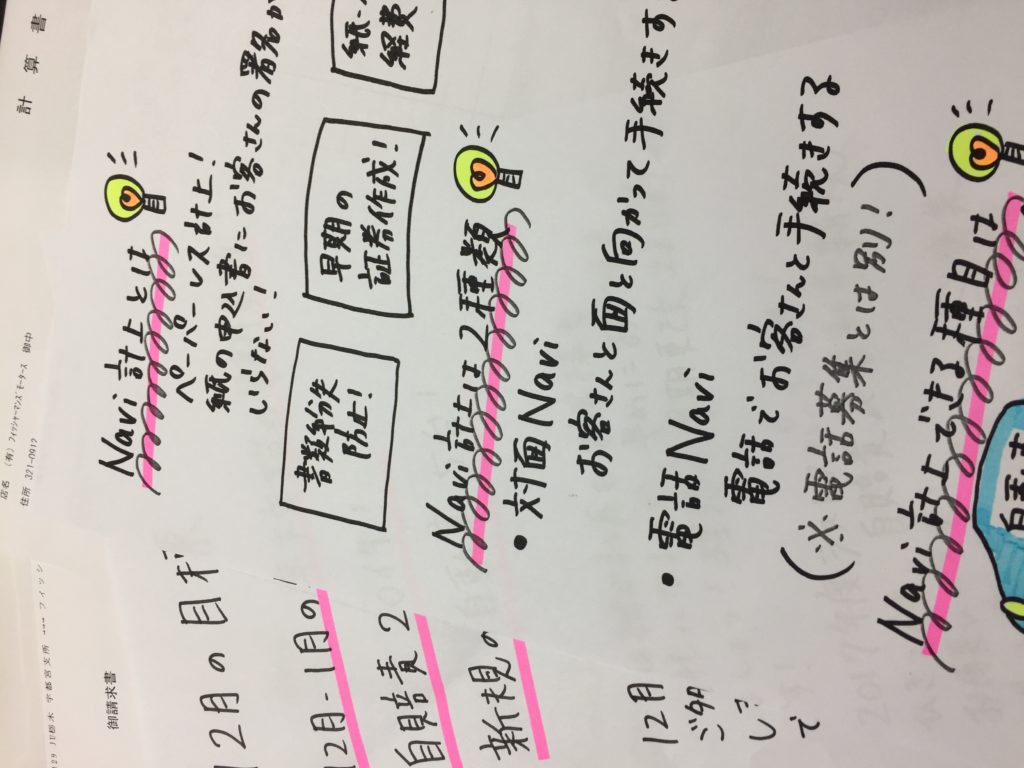 Navi計上とは
ペーパーレス計上!
紙の申込書にお客さんの署名が
いらない!
書類紛失
防止!
早期の
証券作成!
紙
経費
Navi計上は2種類
• 対面Navi
お客さんと面と向かって手続きす
• 電話Navi
電話でお客さんと手続きする
(※電話募集とは別!)
Navi計上できる種目は
12月の目
12月-1月の
自賠責2
新規の
12月
で
計算書
店名 (有)フィッシャーマンズモータース 御中
住所 321-0912
御請求書